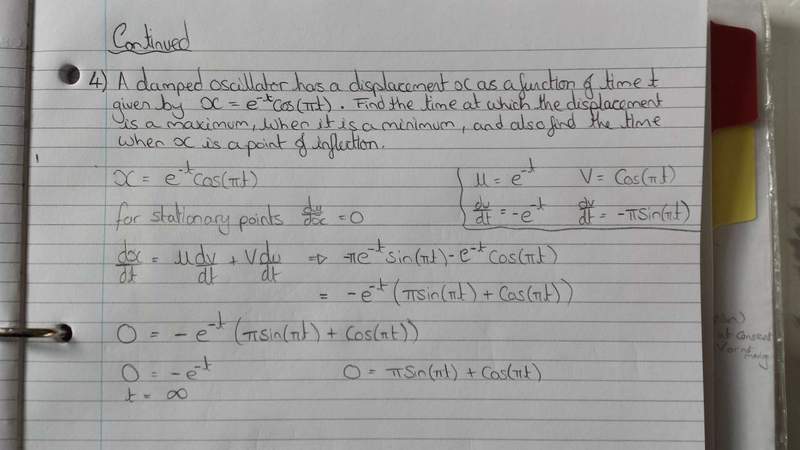 Continued
4) A damped oscillator has a displacement x as a function of time t
given by x = e^-t cos(πt). Find the time at which the displacement
is a maximum, when it is a minimum, and also find the time
when x is a point of inflection.
x = e^-t cos(πt)
u = e^-t V = cos(πt)
for stationary points dy/dx = 0
du/dt = -e^-t dv/dt = -πsin(πt)
dx/dt = u dv/dt + v du/dt ⇒ -πe^-t sin(πt) - e^-t cos(πt)
= -e^-t (πsin(πt) + cos(πt))
0 = -e^-t (πsin(πt) + cos(πt))
0 = -e^-t 0 = πsin(πt) + cos(πt)
t = ∞
at const